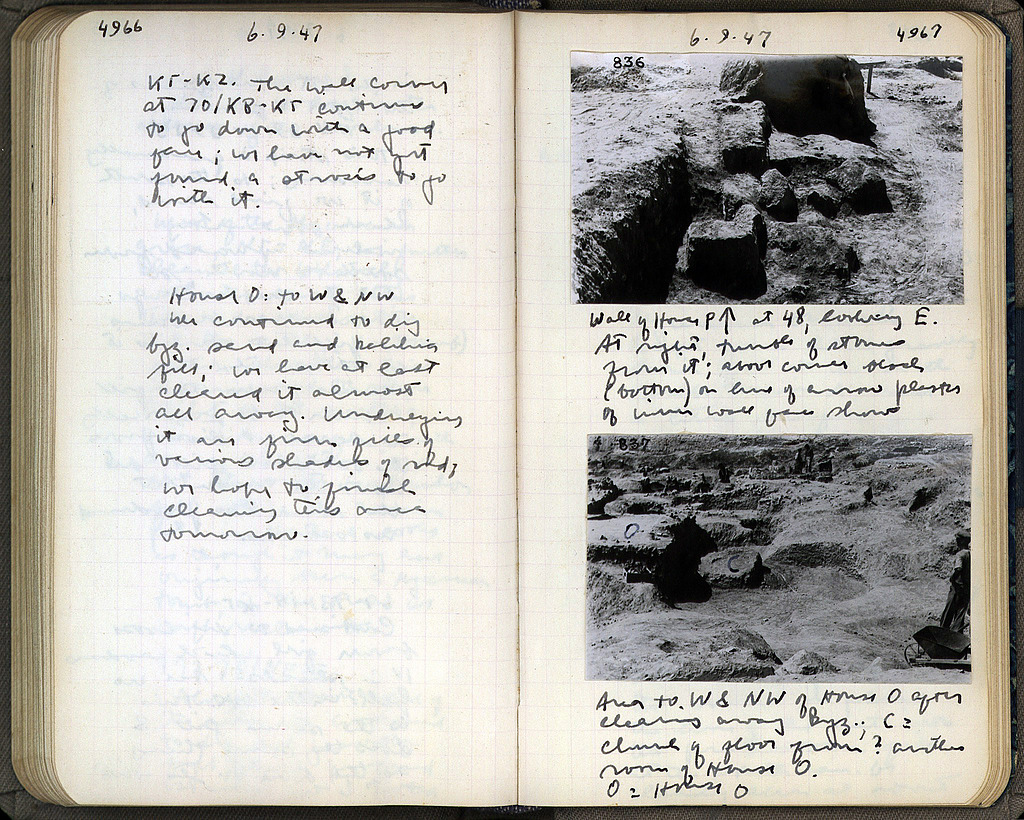 4966
6.9.47
K5-K2. The wall corner
at 70/K8-K5 continues
to go down with a good
face; we have not yet
found a strosis to go
with it.
House O: to W & NW
We continued to dig
byz. sand and
fill; we have at last
cleared it almost
all away. Underlying
it are firm fills of
various shades of red;
we hope to finish
cleaning this area
tomorrow.
6.9.47
4967
836
Wall of House P ↑ at 48, looking E.
At right, tumble of stones
from it; above corner block
(bottom) on line of arrow plaster
of inner wall face shows
837
O
C
Area to W & NW of House O after
clearing away Byz.; C =
chunk of floor from ? another
room of House O.
O = House O